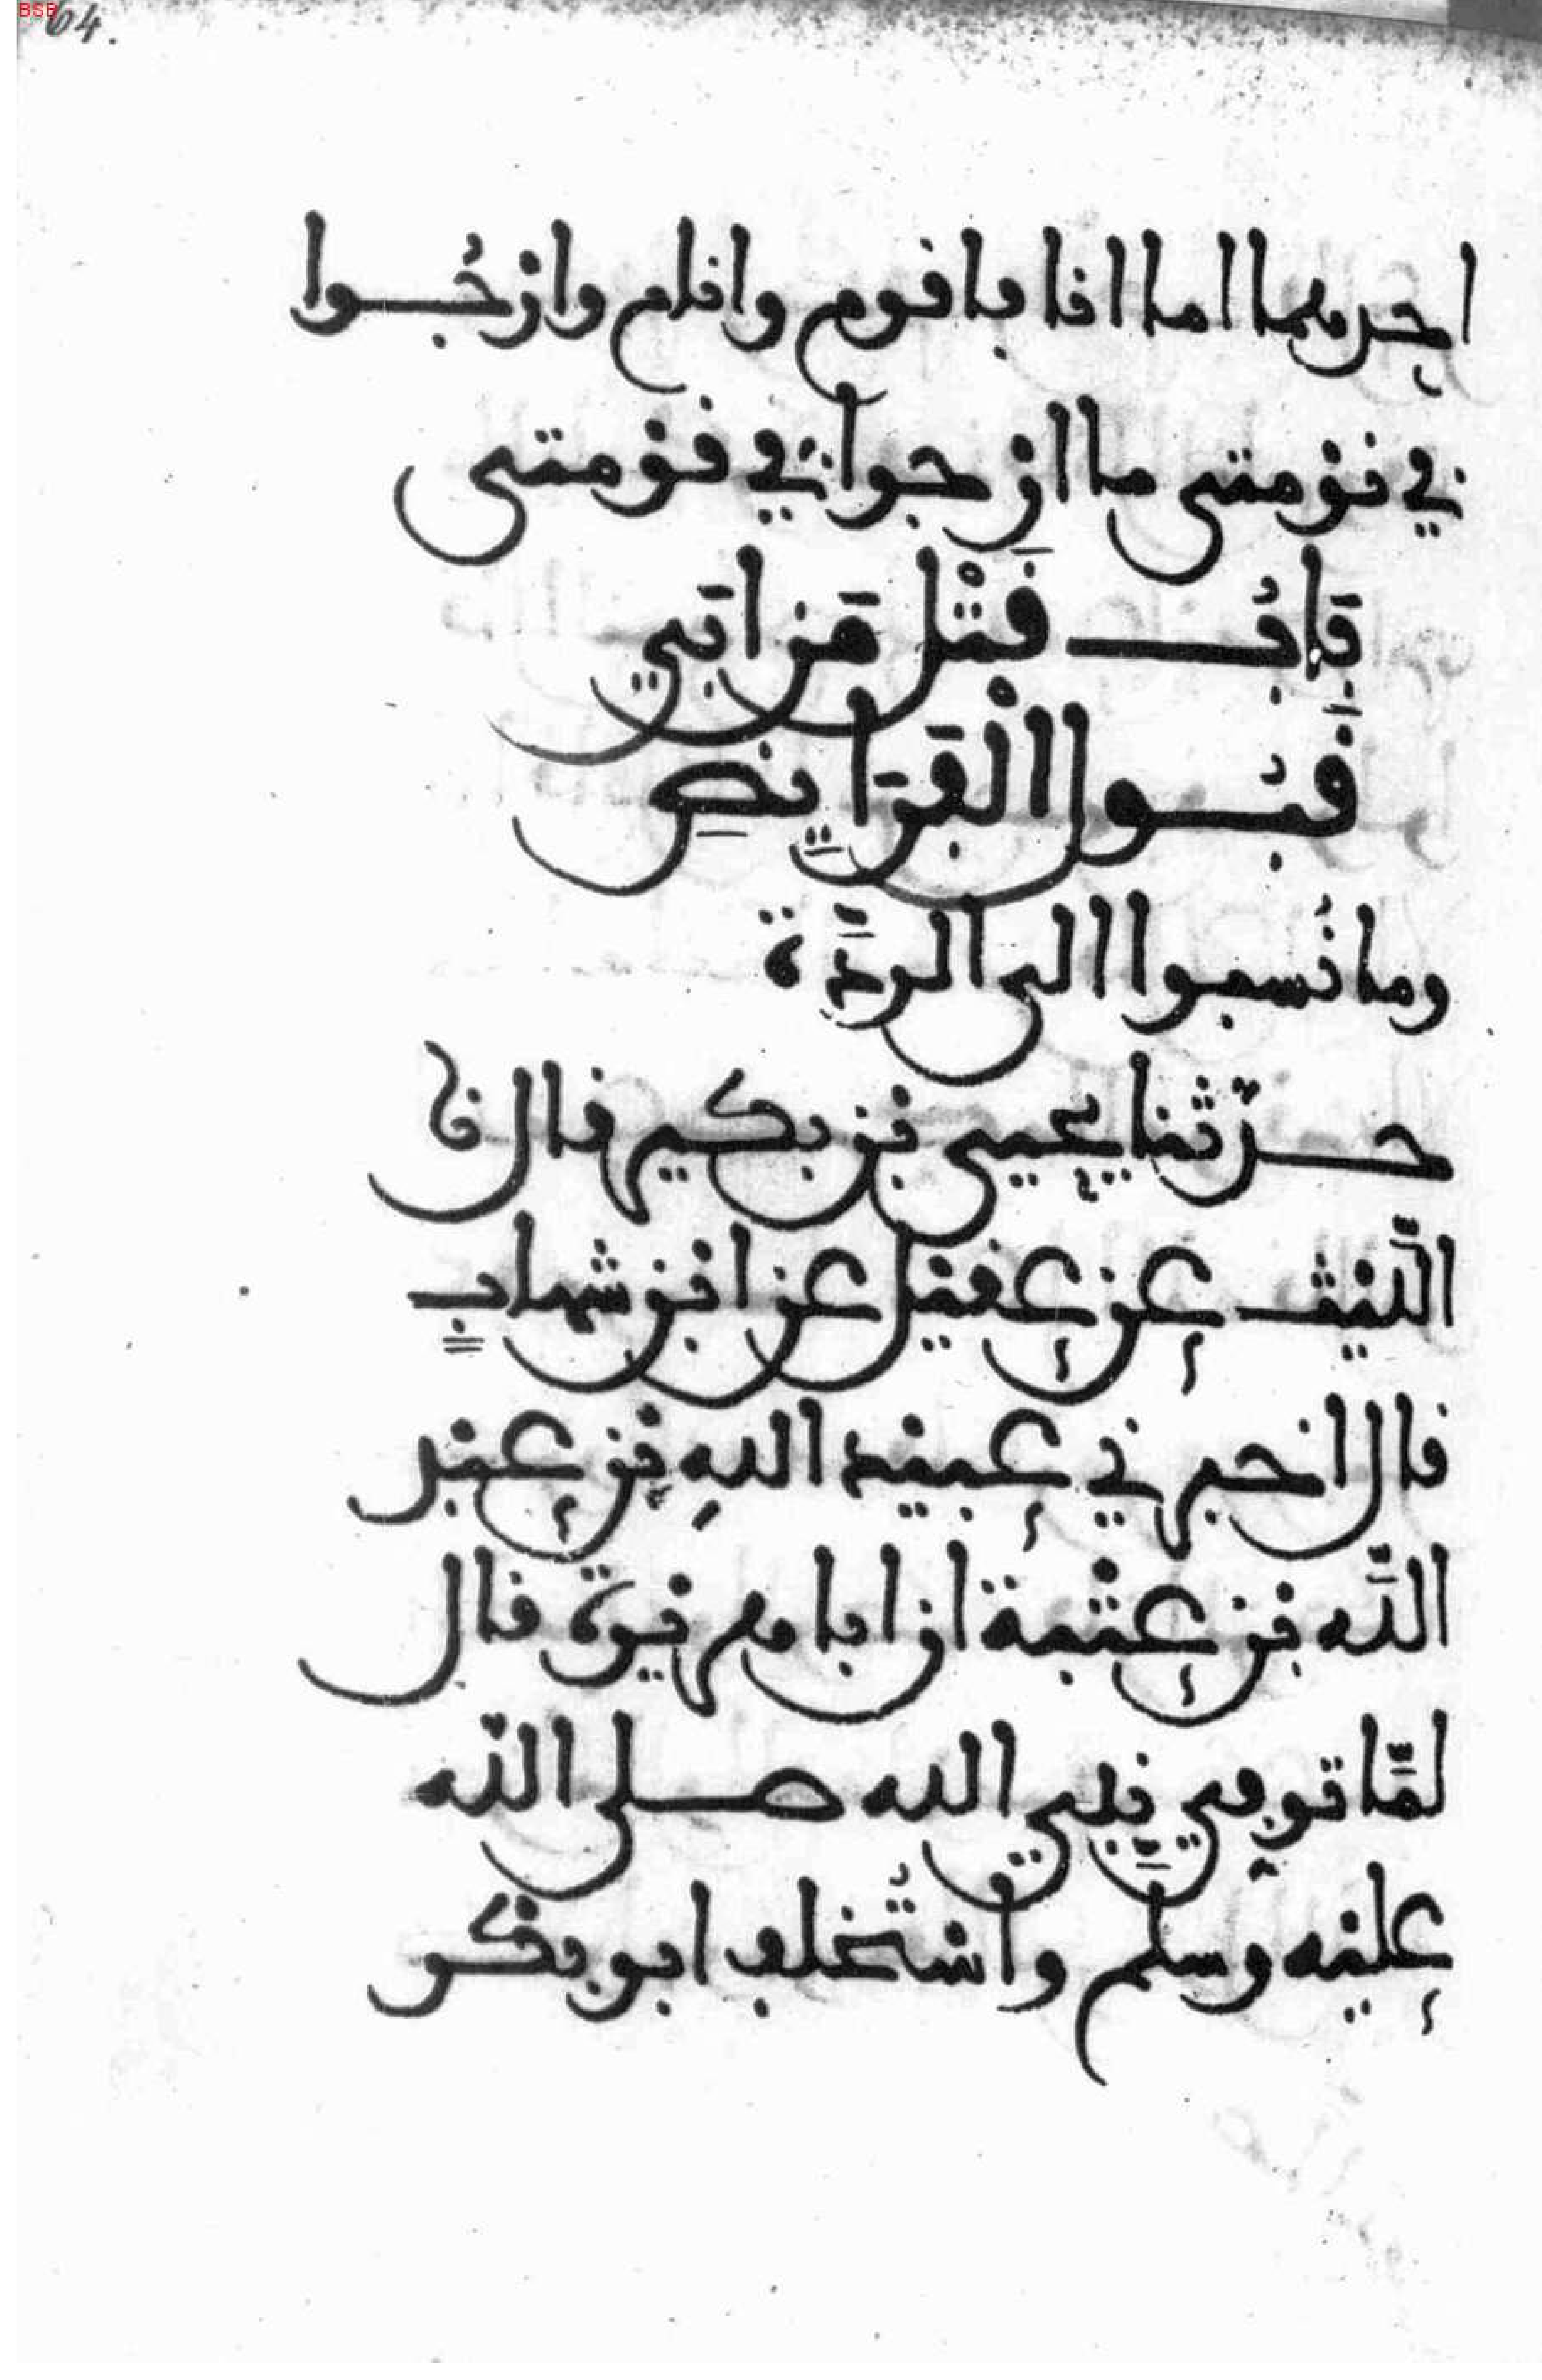 BSB
64.
احدهما اما انا فاقوم وانام وارجُوا
في نومتي ما ارجوا في قومتي
بَابُ قَتْل مَن ابَي
قَبُول الْفَرَايِضِ
وما نُسبوا الى الردَّة
حدّثنا يحيى بن بكير قال نا
اللّيْث عن عقيل عن ابن شهاب
قال اخبرني عبيْد اللهِ بن عبد
اللَّه بن عتْبة ان ابا هريرة قال
لمَّا توفي نبي الله صلى اللّه
عليْه وسلم واسْتُخلف ابو بكر